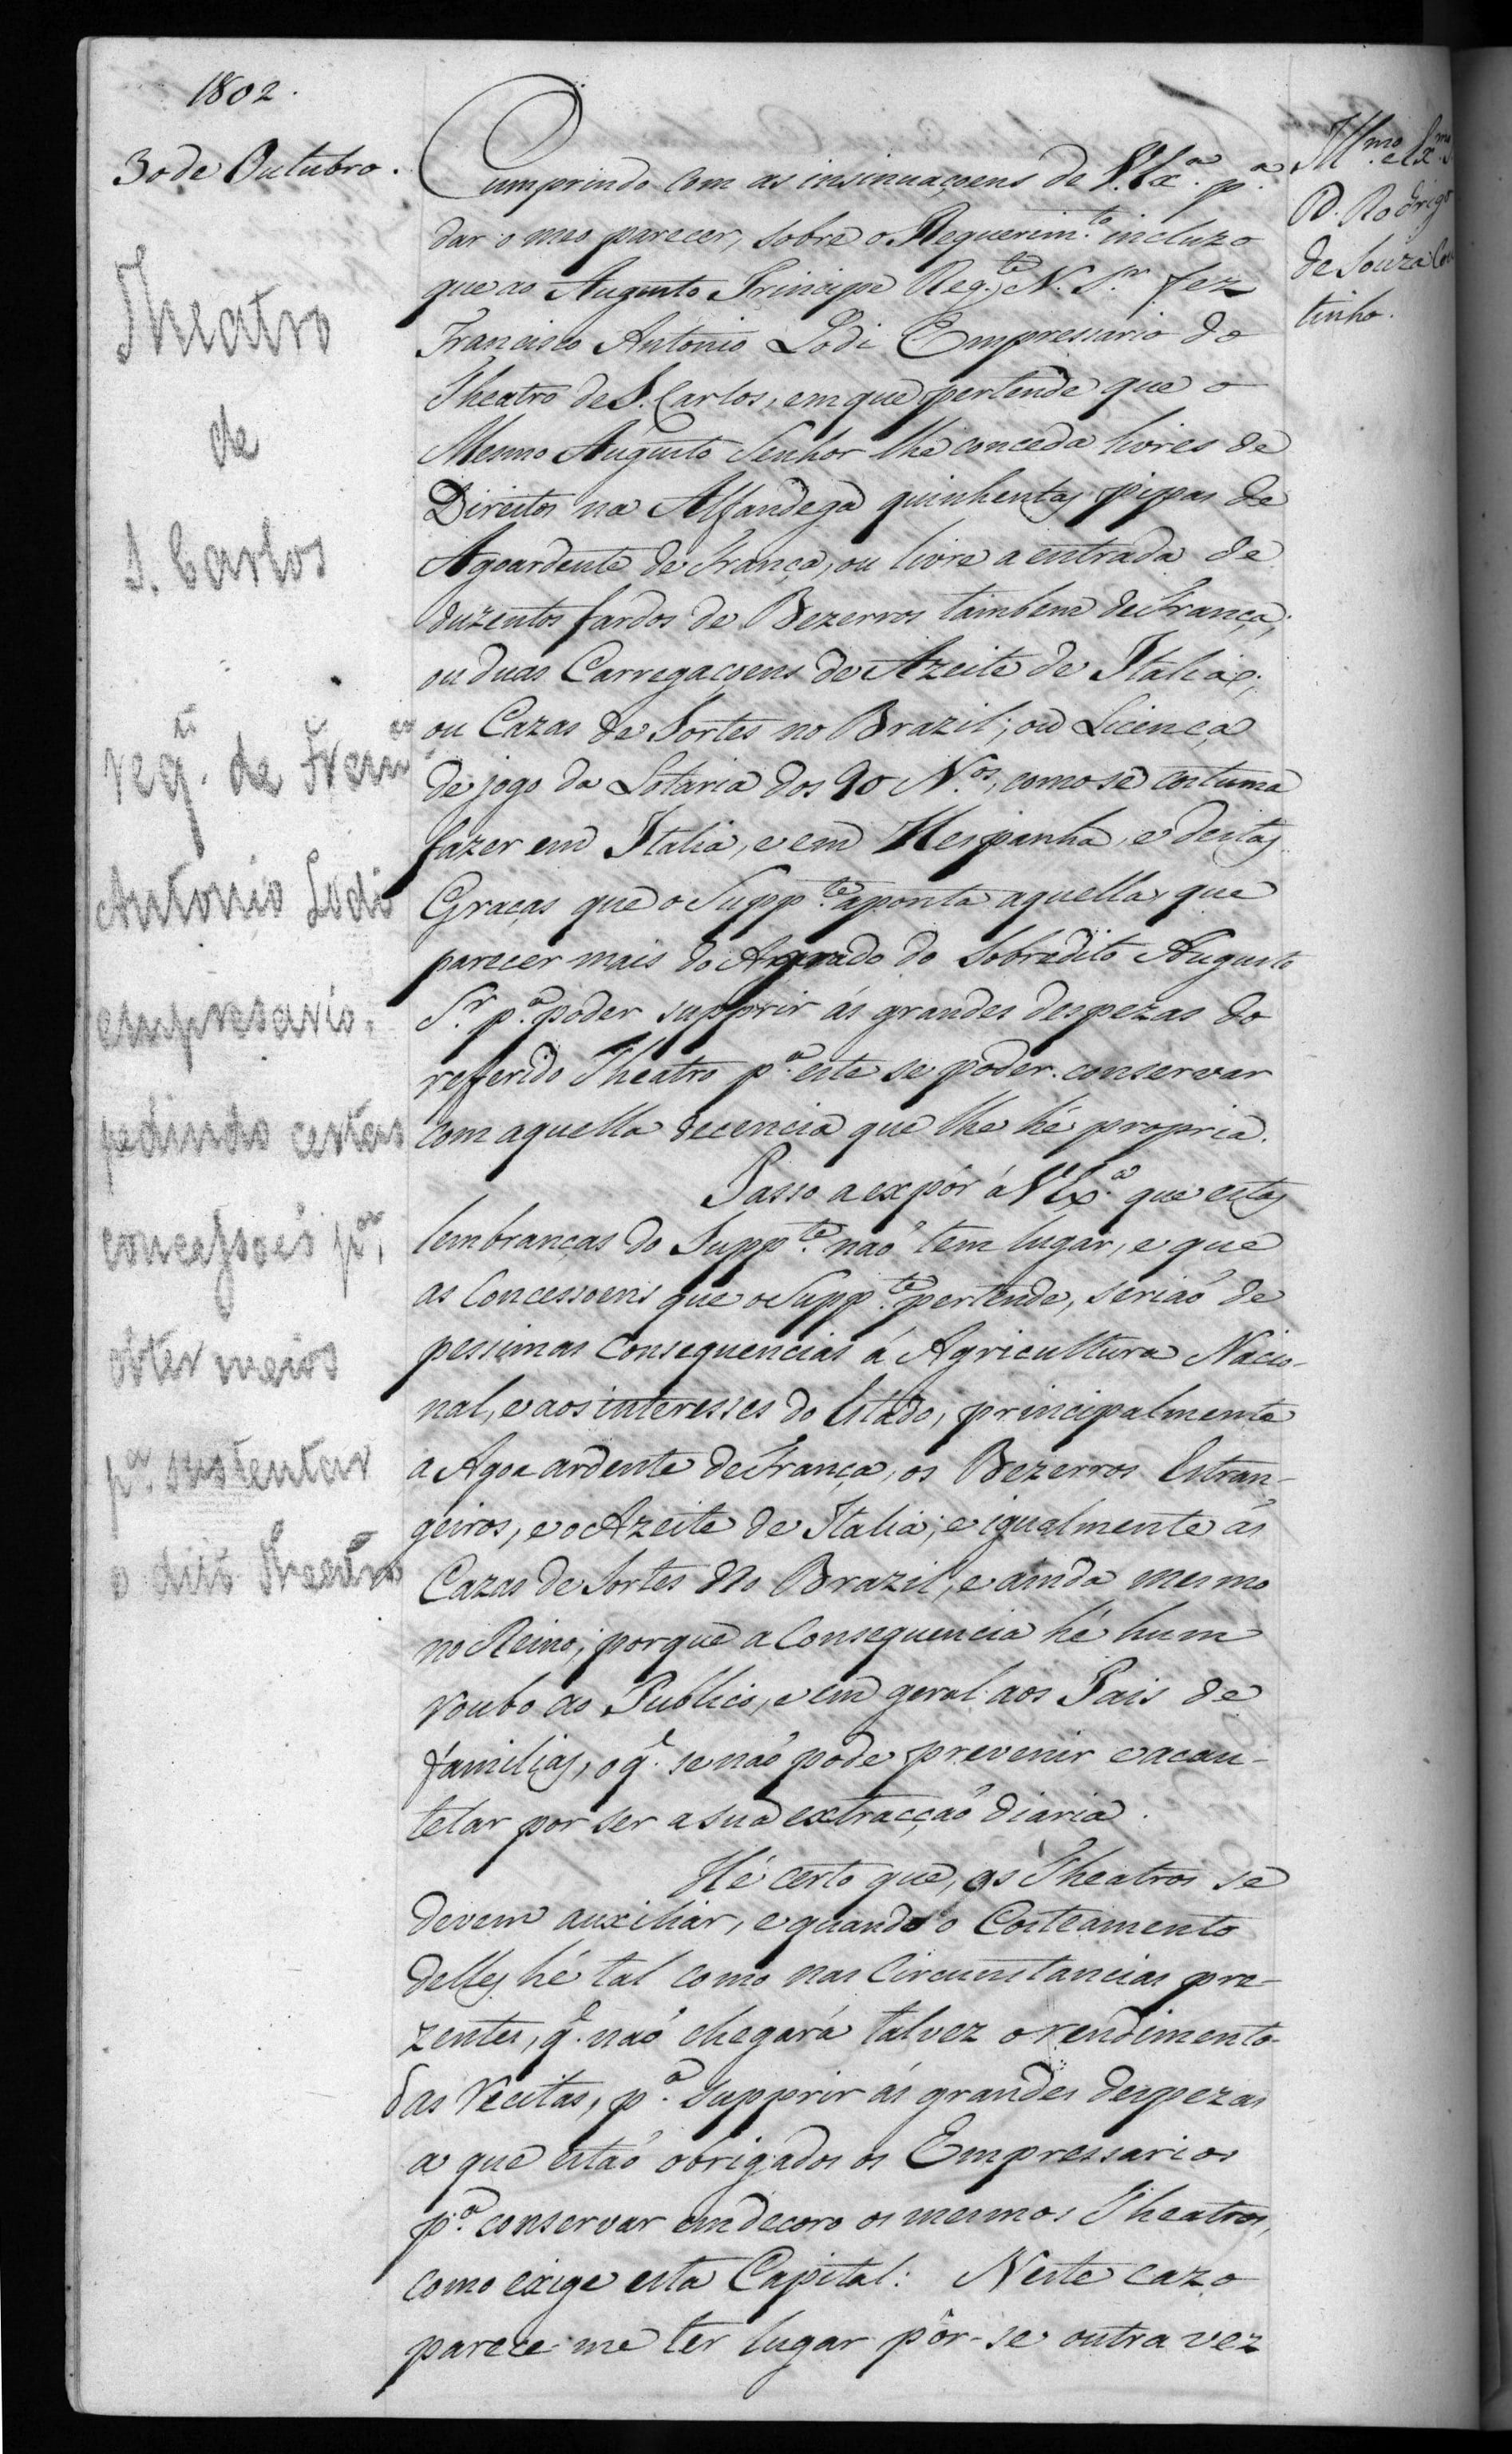 1802.
30 de Outubro.
Theatro
de
S. Carlos
reqti. de Franco
Antonio Lodi
empresario,
pedindo certas
concessoẽs pa.
obter meios
pa. sustentar
o dito Theatro
Illmo. e Exmo. S
D. Rodrigo
de Souza Cou
tinho.
Cumprindo com as insinuaçoens de V. Exa. pa.
dar o meo parecer, sobre o Requerimto. incluzo
que ao Augusto Principe Regte. N. Sr. fez
Francisco Antonio Lodi Empressario do
Theatro de S. Carlos, em que pertende que o
Mesmo Augusto Senhor lhe conceda livres de
Direitos na Alfandega quinhentas pipas de
Agoardente de França, ou livre a entrada de
duzentos fardos de Bezerros tambem de França;
ou duas Carregaçoens de Azeite de Italia;
ou Cazas de Sortes no Brazil; ou Licença
de jogo da Lotaria dos 90 Nos., como se costuma
fazer em Italia, e em Hespanha, e destas
Graças que o Suppte. aponta aquella que
parecer mais do Agrado do Sobredito Augusto
Sr. pa. poder supprir ás grandes despezas do
referido Theatro pa. este se poder conservar
com aquella decencia que lhe hé propria.
Passo a expôr á V. Exa. que estas
lembranças do Suppte. naõ tem lugar, e que
as Concessoens que o Suppte. pertende, seriaõ de
pessimas consequencias á Agricultura Nacio-
nal, e aos interesses do Estado, principalmente
a Agoa ardente de França, os Bezerros Estran-
geiros, e o Azeite de Italia; e igualmente as
Cazas de Sortes no Brazil, e ainda mesmo
no Reino; porque a Consequencia hé hum
roubo ao Publico, e em geral aos Pais de
familias, o q. se naõ pode prevenir e acau-
telar por ser a sua extracçaõ diaria.
Hé certo que, os Theatros se
devem auxiliar, e quando o Costeamento
delles hé tal como nas Circunstancias pre-
zentes, q. naõ chegará talvez o rendimento
das Recitas, pa. supprir ás grandes despezas
a que estaõ obrigados os Empressarios
pa. conservar em decoro os mesmos Theatros,
como exige esta Capital: Neste cazo
parece-me ter lugar pôr-se outra vez